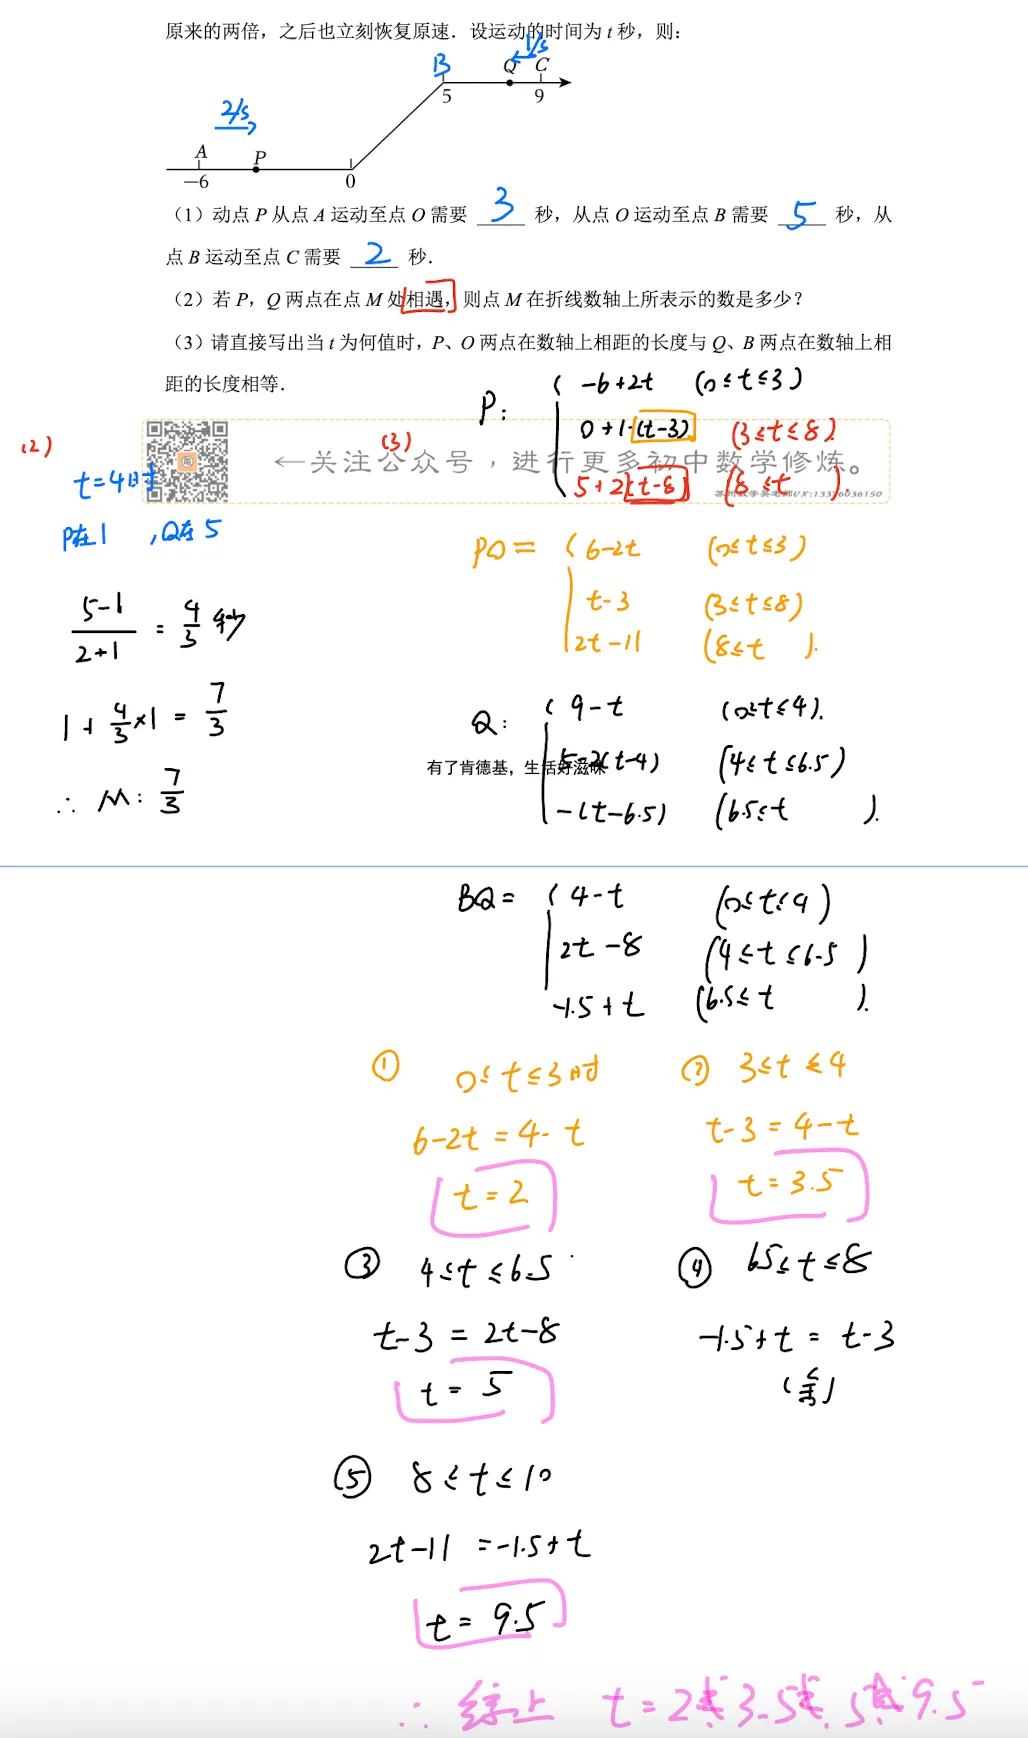 原来的两倍，之后也立刻恢复原速．设运动的时间为 t 秒，则：
1/s
B Q C
5 9
2/s
A P
−6 0
（1）动点 P 从点 A 运动至点 O 需要 3 秒，从点 O 运动至点 B 需要 5 秒，从
点 B 运动至点 C 需要 2 秒．
（2）若 P，Q 两点在点 M 处相遇，则点 M 在折线数轴上所表示的数是多少？
（3）请直接写出当 t 为何值时，P、O 两点在数轴上相距的长度与 Q、B 两点在数轴上相
距的长度相等．
P: -6+2t (0≤t≤3)
0+1·(t-3) (3≤t≤8)
5+2(t-8) (8≤t ).
←关注公众号，进行更多初中数学修炼。
(2)
t=4时
P在1 ,Q在5
5-1/2+1 = 4/3 秒
1+4/3×1=7/3
∴ M: 7/3
(3)
PO= 6-2t (0≤t≤3)
t-3 (3≤t≤8)
2t-11 (8≤t ).
Q: 9-t (0≤t≤4).
5-2(t-4) (4≤t≤6.5)
有了肯德基，生活好滋味
-(t-6.5) (6.5≤t ).
BQ= 4-t (0≤t≤4)
2t-8 (4≤t≤6.5)
-1.5+t (6.5≤t ).
① 0≤t≤3时
6-2t=4-t
t=2
② 3≤t≤4
t-3=4-t
t=3.5
③ 4≤t≤6.5
t-3=2t-8
t=5
④ 6.5≤t≤8
-1.5+t=t-3
(舍)
⑤ 8≤t≤10
2t-11=-1.5+t
t=9.5
∴综上 t=2或3.5或5或9.5